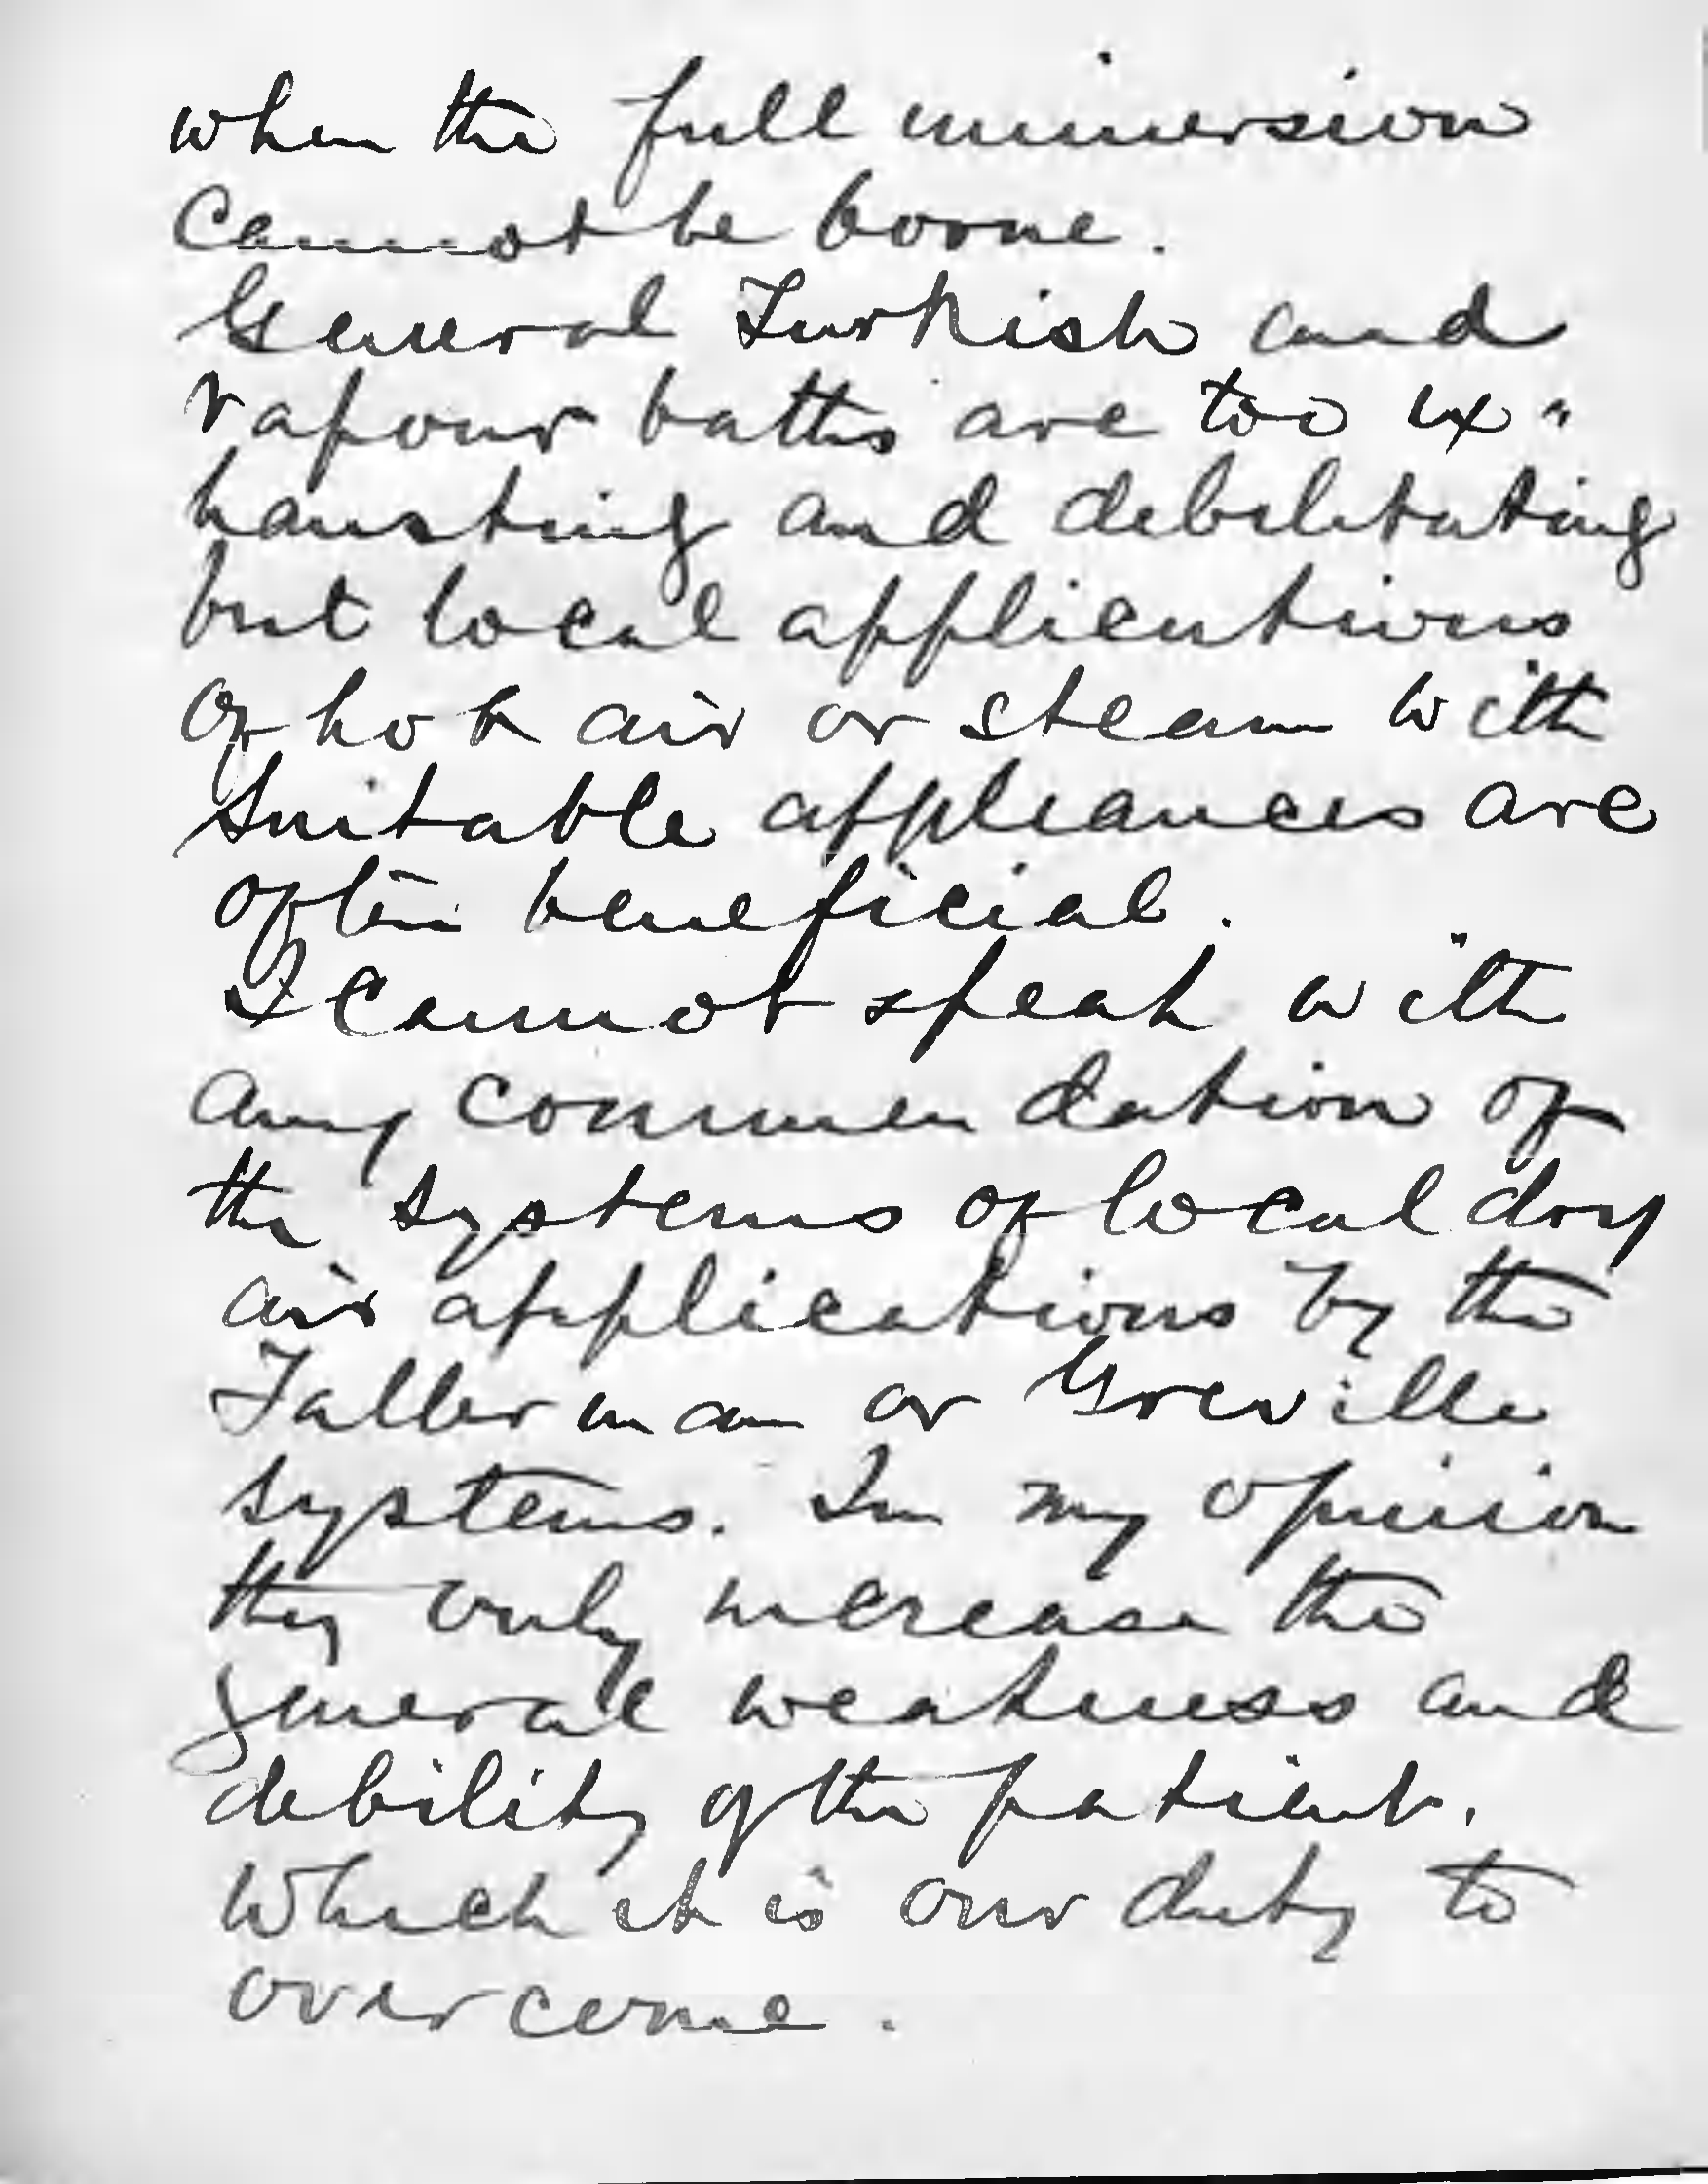 when the full immersion
cannot be borne.
General Turkish and
vapour baths are too ex"
hausting and debilitating
but local applications
of hot air or steam with
suitable appliances are
often beneficial.
I cannot speak with
any commendation of
the systems of local dry
air applications by the
Tallerman or Greville
systems. In my opinion
they only increase the
general weakness and
debility of the patient.
Which it is our duty to
overcome.